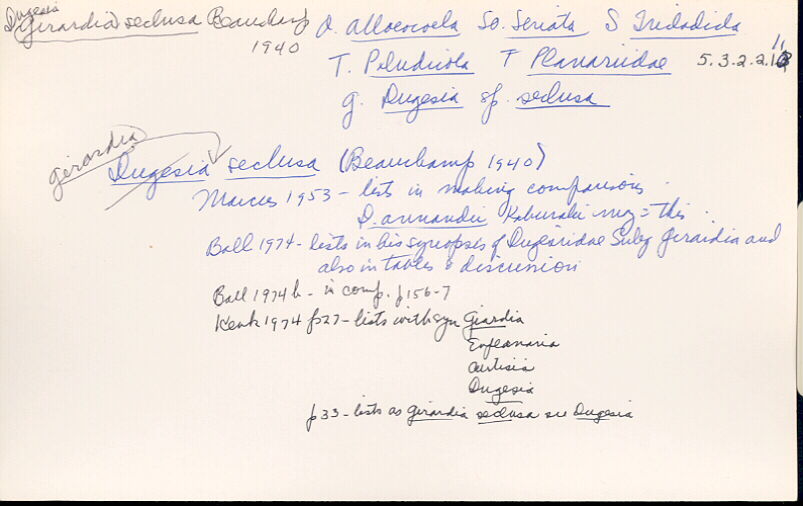 Dugesia
Girardia seclusa Beauchamp
1940
O. alloeocoela So. Seriata S Tricladida
T. Paludicola F Planariidae 5.3.2.2.1
g. Dugesia sp. seclusa
girardia
Dugesia seclusa (Beauchamp 1940)
Marcus 1953 - lists in making comparisons
D. annandei Kaburaki may = this
Ball 1974 - lists in his synopses of Dugesiidae Subg Girardia and
also in tables & discussion
Ball 1974b - in comp. p156-7
Kenk 1974 p27 - lists with syn Girardia
Euplanaria
Curtisia
Dugesia
p33 - lists as girardia seclusa see Dugesia